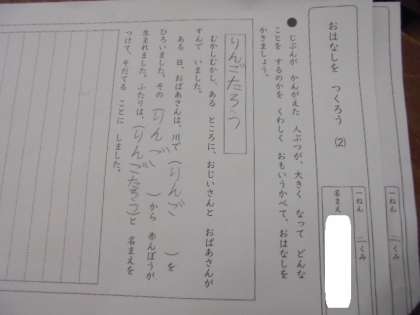 おはなしを つくろう (2)
一ねん 一くみ
名まえ
● じぶんが かんがえた 人ぶつが、大きく なって どんな
ことを するのかを くわしく おもいうかべて、おはなしを
かきましょう。
りんごたろう
むかしむかし、ある ところに、おじいさんと おばあさんが
すんで いました。
ある 日、おばあさんは、川で(りんご )を
ひろいました。その(りんご )から 赤んぼうが
生まれました。ふたりは、(りんごたろう)と 名まえを
つけて、そだてる ことに しました。
一ねん 一くみ